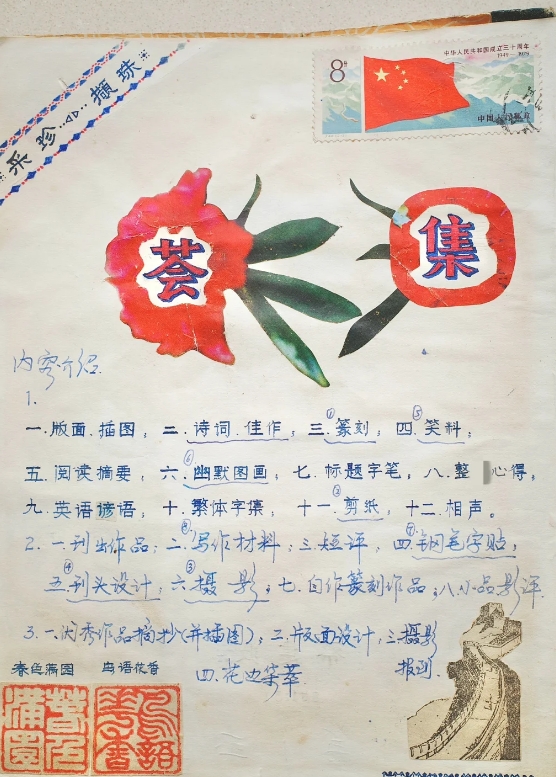 采珍 撷珠
8分
中华人民共和国成立三十周年
1949-1979
中国人民邮政
荟 集
内容介绍
1.
一.版面.插图；二.诗词.佳作；三.①篆刻；四.⑤笑料；
五.阅读摘要；六.⑥幽默图画；七.标题字笔；八.整 心得；
九.英语谚语；十.繁体字集；十一.②剪纸；十二.相声。
2.一.刊出作品；二.写作材料；三.短评；四.钢笔字贴；
五.④刊头设计；六.③摄影；七.自作篆刻作品；八.小品影评
3.一.优秀作品摘抄(并插图)；二.版面设计；三.摄影
报刊.
四.花边荟萃
春色满园 鸟语花香
春色满园 鸟语花香